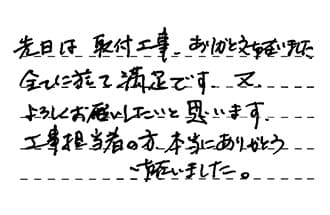 先日は 取付工事、ありがとうございました
全てに於て満足です。又、
よろしくお願いしたいと思います。
工事担当者の方、本当にありがとう
ございました。